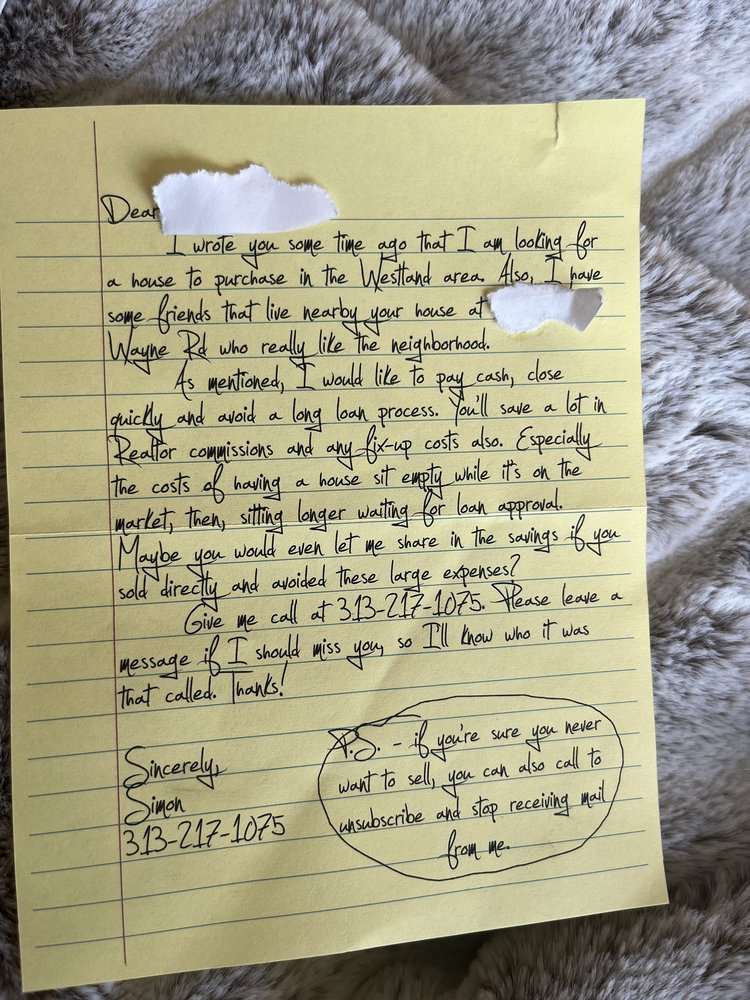 Dear
I wrote you some time ago that I am looking for
a house to purchase in the Westland area. Also, I have
some friends that live nearby your house at
Wayne Rd who really like the neighborhood.
As mentioned, I would like to pay cash, close
quickly and avoid a long loan process. You'll save a lot in
Realtor commissions and any fix-up costs also. Especially
the costs of having a house sit empty while it's on the
market, then, sitting longer waiting for loan approval.
Maybe you would even let me share in the savings if you
sold directly and avoided these large expenses?
Give me call at 313-217-1075. Please leave a
message if I should miss you, so I'll know who it was
that called. Thanks!
Sincerely,
Simon
313-217-1075
P.S. - if you're sure you never
want to sell, you can also call to
unsubscribe and stop receiving mail
from me.